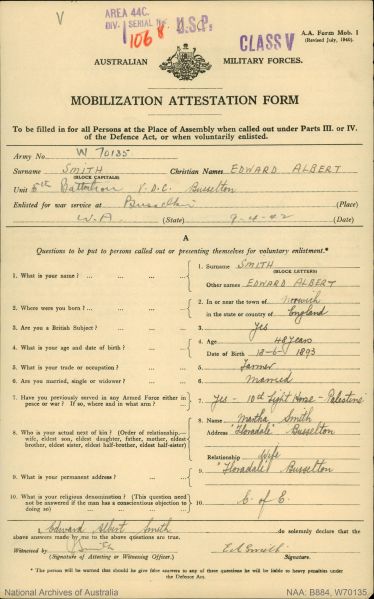 V
AREA 44C.
DIV. SERIAL No.
1068
U.S.P.
CLASS V
A.A. Form Mob. 1
(Revised July, 1940).
AUSTRALIAN MILITARY FORCES.
MOBILIZATION ATTESTATION FORM
To be filled in for all Persons at the Place of Assembly when called out under Parts III. or IV.
of the Defence Act, or when voluntarily enlisted.
Army No. W 70135
Surname SMITH Christian Names EDWARD ALBERT
(BLOCK CAPITALS)
Unit 5th Battalion V.D.C. Busselton
Enlisted for war service at Busselton (Place)
W.A. (State) 9-4-42 (Date)
A
Questions to be put to persons called out or presenting themselves for voluntary enlistment.*
1. What is your name? ... ... ... 1. Surname SMITH
(BLOCK LETTERS)
Other names EDWARD ALBERT
2. Where were you born? ... ... ... 2. In or near the town of Norwich
in the state or country of England
3. Are you a British Subject? ... ... 3. Yes
4. What is your age and date of birth? ... 4. Age 48 years
Date of Birth 18-6-1893
5. What is your trade or occupation? ... 5. Farmer
6. Are you married, single or widower? ... 6. Married
7. Have you previously served in any Armed Force either in peace or war? If so, where and in what arm? 7. Yes - 10th Light Horse - Palestine
8. Who is your actual next of kin? (Order of relationship,—
wife, eldest son, eldest daughter, father, mother, eldest
brother, eldest sister, eldest half-brother, eldest half-sister)
8. Name Martha Smith
Address "Floradale" Busselton
Relationship Wife
9. What is your permanent address? ... 9. "Floradale" Busselton
10. What is your religious denomination? (This question need
not be answered if the man has a conscientious objection to
doing so) ... ... ... 10. C of E.
I, Edward Albert Smith do solemnly declare that the
above answers made by me to the above questions are true.
Witnessed by Smith
(Signature of Attesting or Witnessing Officer.)
E A Smith
Signature.
* The person will be warned that should he give false answers to any of these questions he will be liable to heavy penalties under
the Defence Act.
National Archives of Australia NAA: B884, W70135